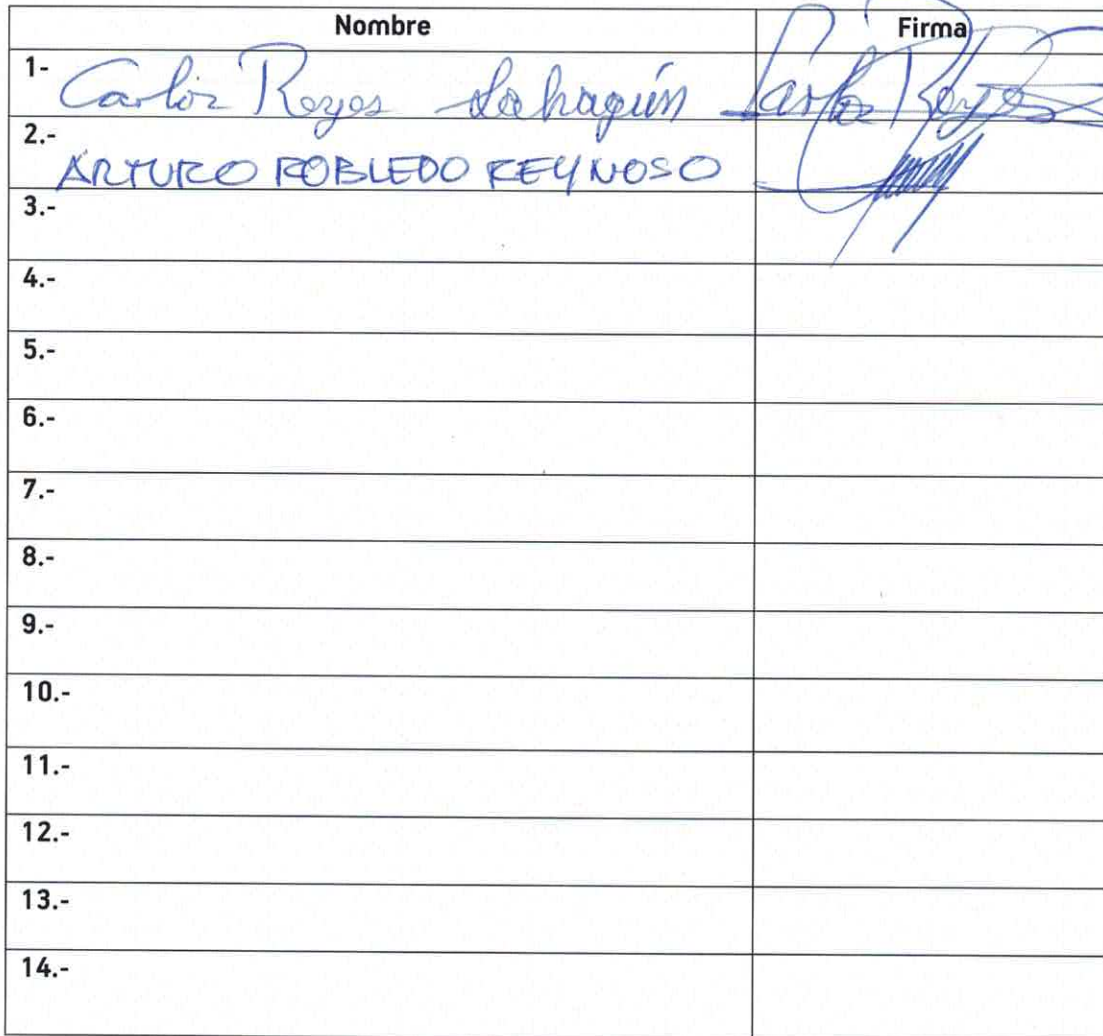 Nombre Firma
1- Carlos Reyes Sahagún Carlos Reyes S
2.- ARTURO ROBLEDO REYNOSO
3.-
4.-
5.-
6.-
7.-
8.-
9.-
10.-
11.-
12.-
13.-
14.-